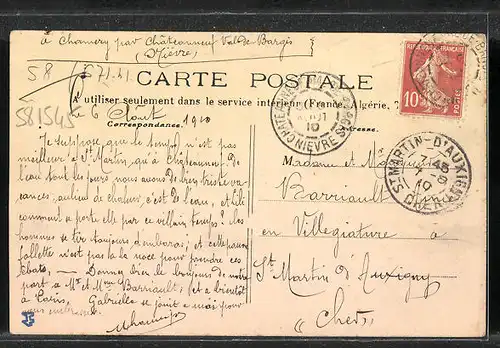 à Chamery par Châteauneuf Val de Bargis
(Nièvre)
58
581545
CARTE POSTALE
A utiliser seulement dans le service intérieur (France, Algérie, T
Le 6 Août 1910
Correspondance.
Adresse.
RÉPUBLIQUE FRANÇAISE
10
NIÈVRE
10
ST MARTIN-D'AUXIGNY
7-8
10
CHER
Je suppose que le temps n'est pas
meilleur à St Martin, qu'à Châteauneuf. De
l'eau tous les jours nous avons de bien tristes va-
cances, au lieu de chaleur, c'est de l'eau, et Lili
comment se porte elle par ce vilain temps? les
hommes se tire toujours d'embaras; et cette pauvre
follette n'est pas à la noce pour prendre ces
Chats, — Donnez bien le bonjour de notre
part à Mr et Mme Barriault; et à bientôt
à Paris, Gabrielle se joint à moi pour
vous embrasser
Madame et
Barriault
en Villegiature à
St Martin d'Auxigny
(Cher)